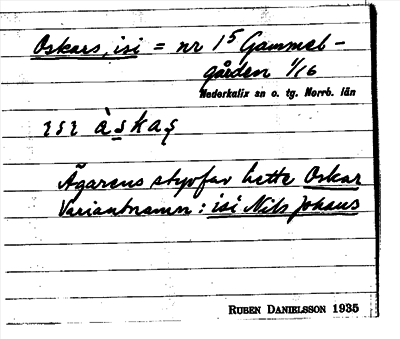 Oskars, isi = nr 1⁵ Gammel-
gården 1/16
Nederkalix sn o. tg. Norrb. län
ɩsɩ àskaş
Ägarens styvfar hette Oskar
Variantnamn: isi Nils Johans
RUBEN DANIELSSON 1935